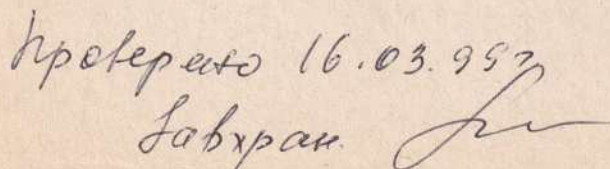 Проверено 16.03.95г
Завхран.